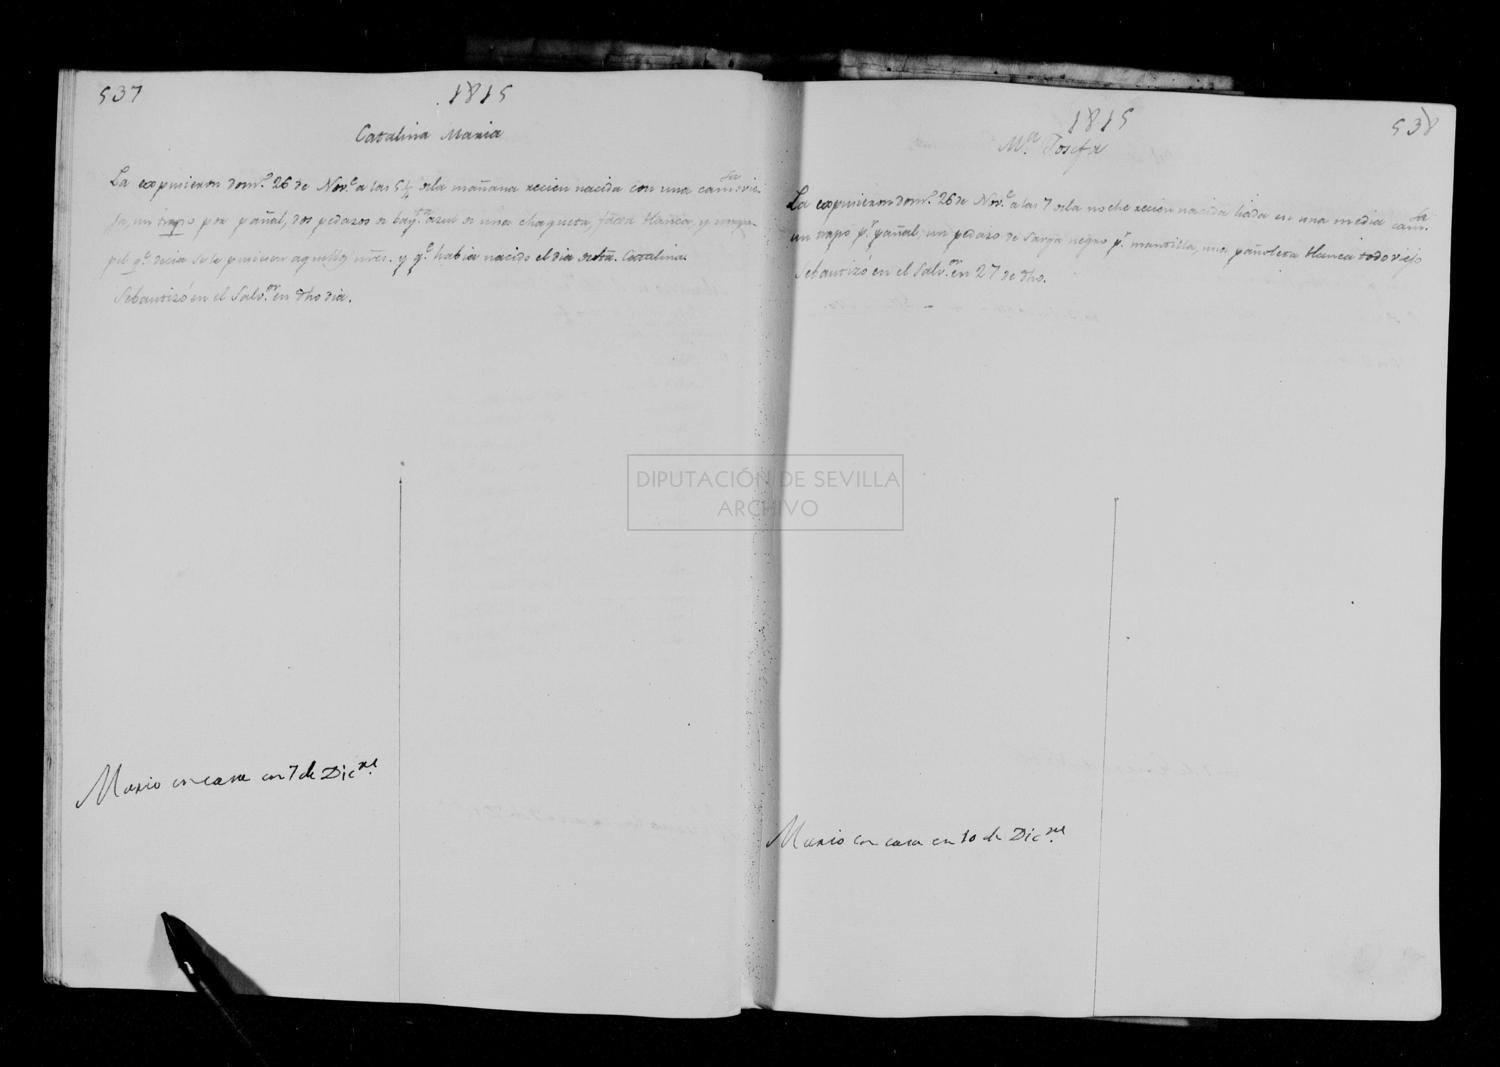 537
1815
Catalina Maria
La expusieron domº. 26 de Novᵉ. a las 5¼ de la mañana recien nacida con una camˢᵃ vie-
ja, un trapo por pañal, dos pedazos de bayᵗᵃ azul de una chaqueta, faxa blanca, y un pa-
pel qᵉ. decia se le pusieran aquellos nres. y qᵉ. habia nacido el dia de Sta. Catalina.
Se bautizó en el Salvᵒʳ. en dho dia.
Murio en casa en 7 de Dicʳᵉ.
1815
538
Mᵃ. Josefa
La expusieron domº. 26 de Novᵉ. a las 7 de la noche recien nacida liada en una media camˢᵃ.
un trapo pʳ. pañal, un pedazo de sarga negro pʳ. mantilla, una pañoleta blanca todo viejo
Se bautizó en el Salvᵒʳ. en 27 de dho.
Murio en casa en 10 de Dicʳᵉ.
DIPUTACIÓN DE SEVILLA
ARCHIVO